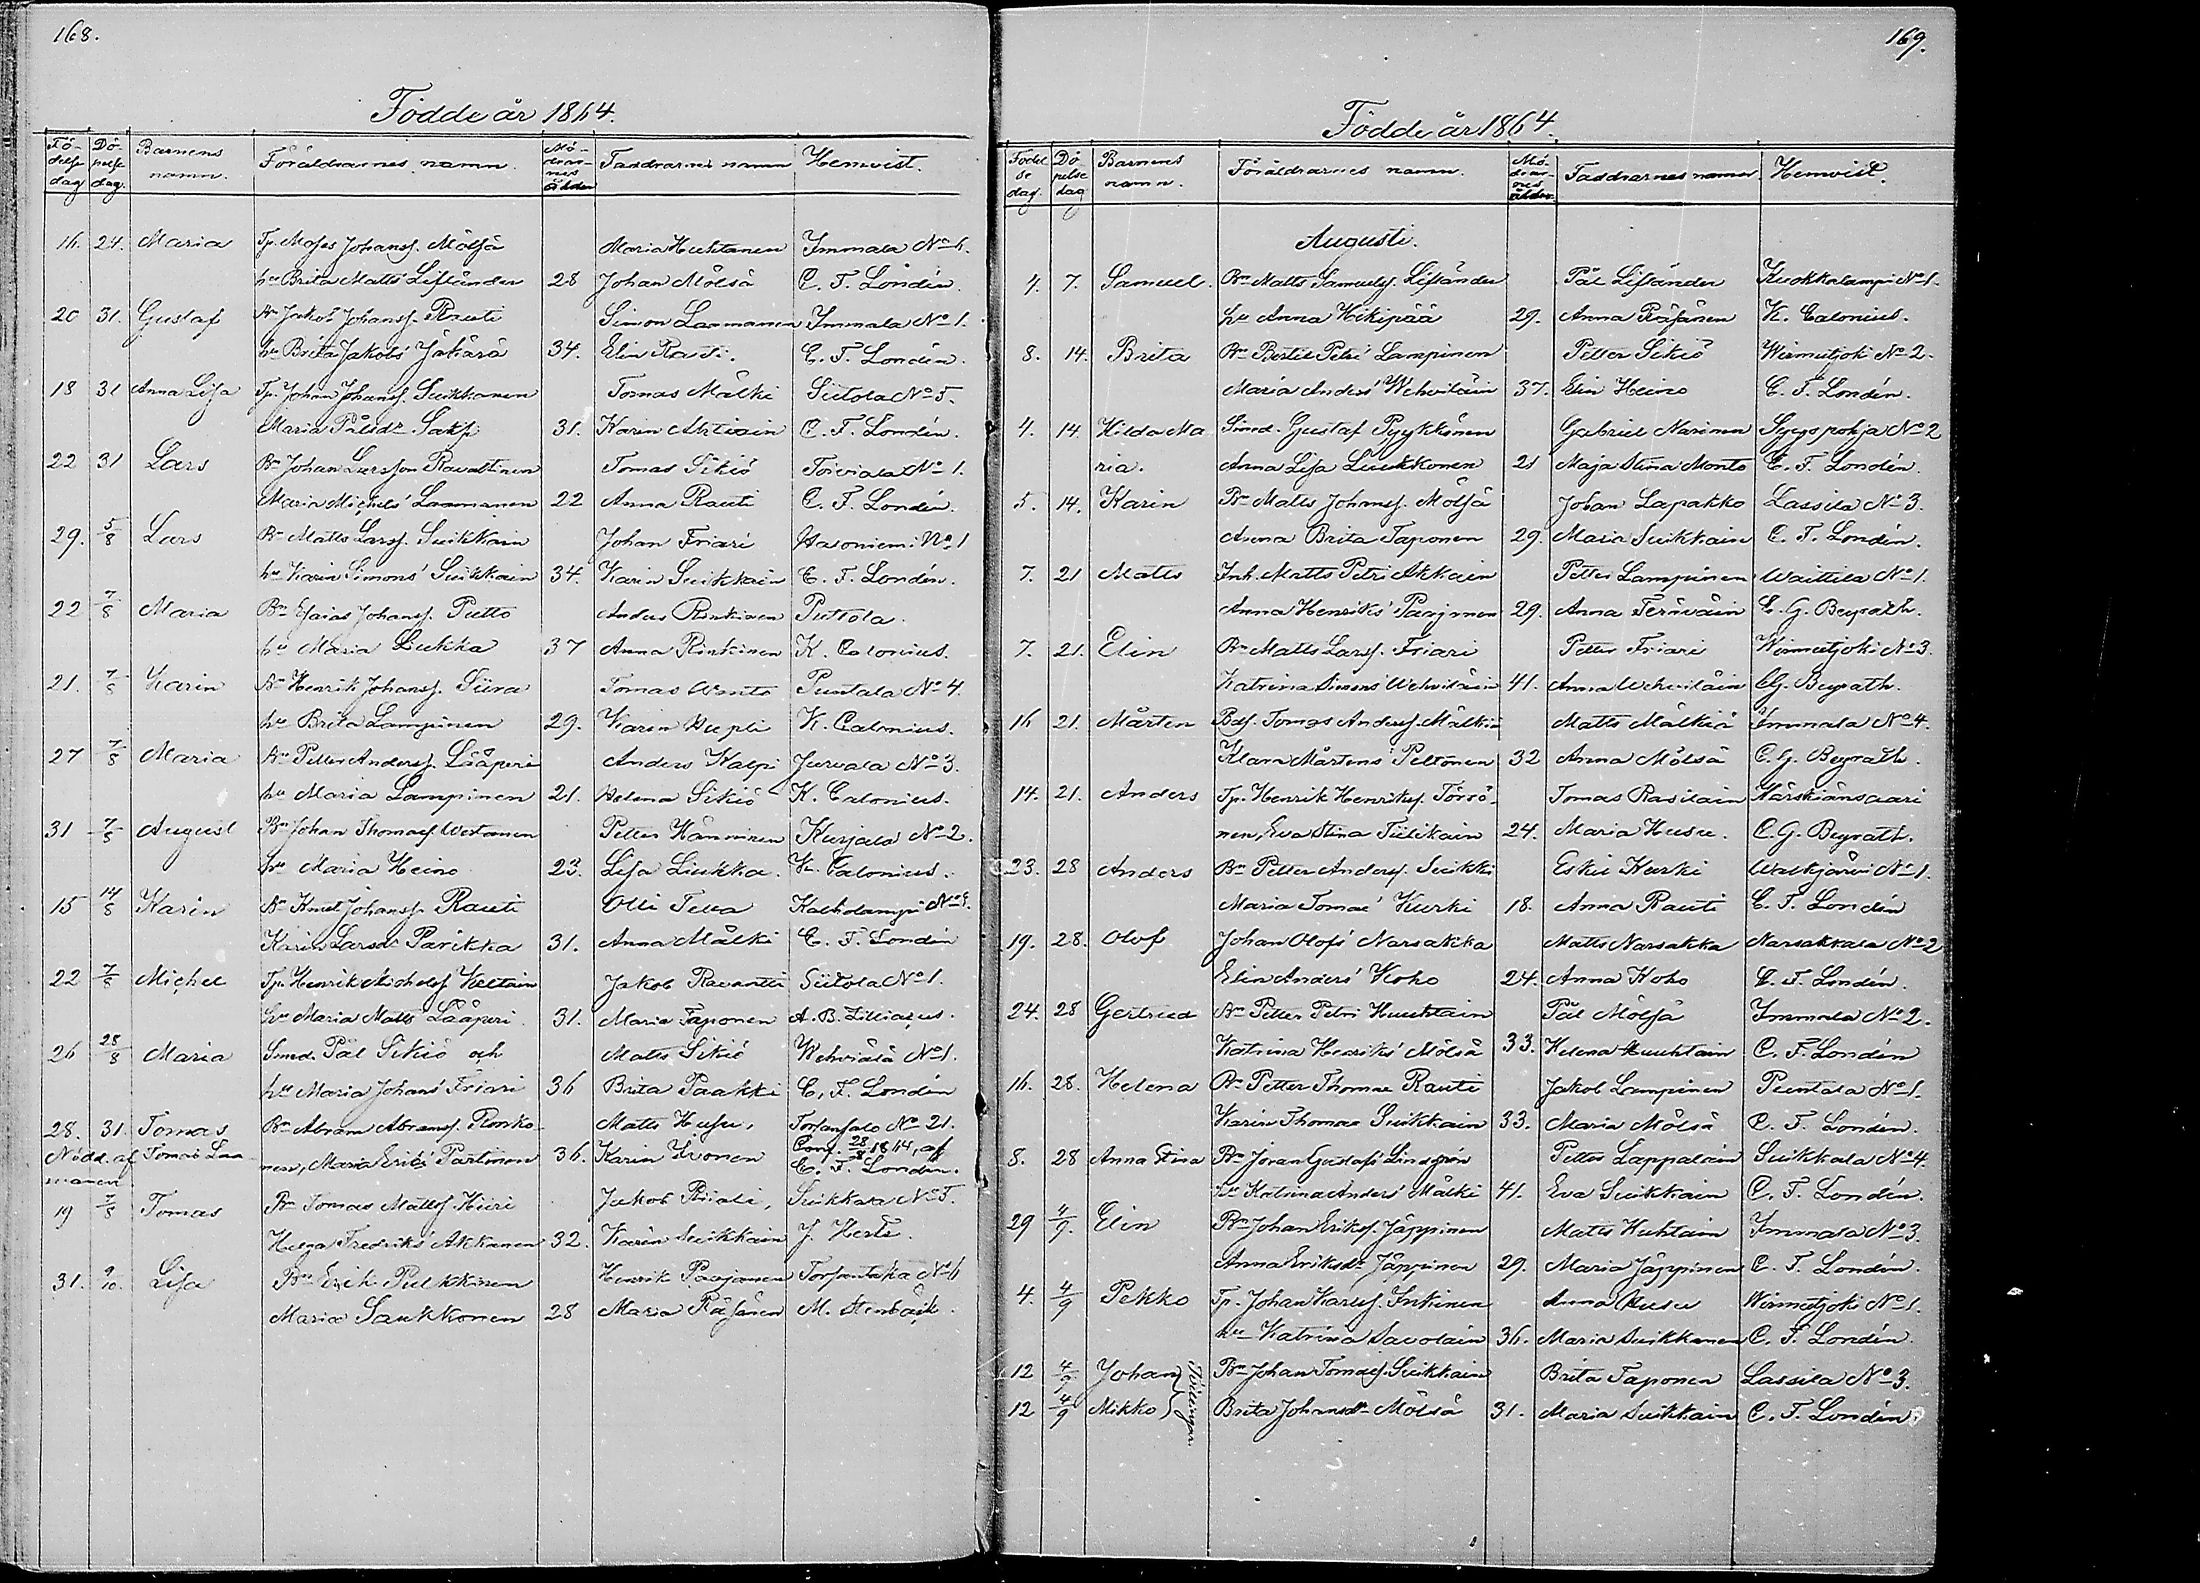 168.
Födde år 1864.
Fö-delse dag Dö-pelse dag. Barnens namn. Föräldrarnes namn. Mö-drar-nes ålder Faddrarnes namn Hemvist.
16. 24. Maria Tp. Moses Johanss. Mölsä Maria Huhtanen Immala No 6.
hu Brita Matts Lifländer 28 Johan Mölsä C. F. Londén.
20 31. Gustaf Bn Jakob Johanss. Rauti Simon Laamanen Immala No 1.
hu Brita Jakobs Jäkärä 34. Elin Rauti. C. F. Londén.
18 31 Anna Lisa Tp. Johan Johanss. Suikkanen Tomas Mälki Siitola No 5.
Maria Pålsdr 31. Karin C. F. Londén.
22 31 Lars Bn Johan Larsson Ravattinen Tomas Sikiö Toiviala No 1.
Maria Michels Laamanen 22 Anna Rauti C. F. Londén.
29. 5/8 Lars Bn Matts Larss. Suikkain Johan Friari No 1
hu Karin Simons' Suikkain 34. Karin Suikkain C. F. Londén.
22 7/8 Maria Bn Esaias Johanss. Putto Anders Rinkinen Puttola.
hu Maria Liukka 37 Anna Rinkinen K. Calonius.
21. 7/8 Karin Bn Henrik Johanss. Siira Tomas Wento Puntala No 4.
hu Brita Lampinen 29. Karin K. Calonius.
27 7/8 Maria Bn Petter Anderss. Lääperi Anders Kalpi Jurvala No 3.
hu Maria Lampinen 21. Helena Sikiö K. Calonius.
31 7/8 August Bn Johan Thomass. Petter Hänninen Kurjala No 2.
hu Maria Heino 23. Lisa Liukka. K. Calonius.
15 14/8 Karin Bn Knut Johanss. Rauti Olli Tella Kalholampi
Karin Larsdr Parikka 31. Anna Mälki C. F. Londén
22 7/8 Michel Tp. Henrik Michelss. Keltain Jakob Ravantti Siitola No 1.
hu Maria Matts Lääperi. 31. Maria Taponen A. B. Zilliacus.
26 28/8 Maria Smed. Pål Sikiö och Matts Sikiö No 1.
hu Maria Johans' Friari 36 Brita Paakki C. F. Londén
28. 31. Tomas Bn Abram Abramss. Ronko- Matts Husu, Torsansalo No 21.
Nödd. af Tomas Laa- nen, Maria Eriks' Partinen 36. Karin Kronen Conf. 28/8 1864, af
manen C. F. Londén.
19 7/8 Tomas Bn Tomas Mattss. Hiiri Jakob Suikkala No 5.
Helga Fredriks' Akkanen 32. Karin Suikkain J. Hertz.
31. 9/10. Lisa Bn Erik Pulkkinen Henrik Paajanen No 6
Maria Saukkonen 28 Maria Räsänen M. Stenbäck.
169.
Födde år 1864.
Födel se dag. Dö pelse dag Barnens namn. Föräldrarnes namn. Mö. drar-nes ålder Faddrarnes namn Hemvist.
Augusti.
4. 7. Samuel. Bn Matts Samuels. Lifländer Pål Lifländer Kuokkalampi No 1.
hu Anna Kikipää 29. Anna Räsänen K. Calonius.
8. 14. Brita Bn Bertil Petri' Lampinen Petter Sikiö Wirmutjoki No 2.
Maria Anders' Wehviläin 37. Elin Heino C. F. Londén.
4. 14. Hilda Ma Smed. Gustaf Pyykkönen Gabriel Narinen Syyspohja No 2
ria. Anna Lisa Liukkonen 21 Maja Stina Monto C. F. Londén.
5. 14. Karin Bn Matts Johanss. Mölsä Johan Lapakko Lassila No 3.
Anna Brita Taponen 29. Maria Suikkain C. F. Londén.
7. 21 Matts Inh. Matts Petri Akkain Petter Lampinen Waittila No 1.
Anna Henriks' Paajanen 29. Anna Teräväin C. G. Beyrath.
7. 21. Elin Bn Matts Larss. Friari Petter Friari Wirmutjoki No 3.
Katrina Simons' Wehviläin 41. Anna Wehviläin CG. Beyrath.
16 21. Mårten Tomas Anderss. Mälkiä Matts Mälkiä Immala No 4.
Klara Mårtens' Peltonen 32 Anna Mölsä C. G. Beyrath.
14. 21. Anders Tp. Henrik Henrikss. Törrö- Tomas Rasilain Härskiänsaari
nen, Eva Stina Tiilikain 24. Maria Husu. C. G. Beyrath.
23. 28 Anders Bn Petter Anderss. Suikki Eskil Kurki Walkjärvi No 1.
Maria Tomas' Kurki 18. Anna Rauti C. F. Londén
19. 28. Olof Johan Olofs' Narsakka Matts Narsakka Narsakkala No 2
Elin Anders' Koho 24. Anna Koho C. F. Londén.
24. 28 Gertrud Bn Petter Petri Huuhtain Pål Mölsä Immala No 2.
Katrina Henriks' Mölsä 33. Helena Huuhtain C. F. Londén
16. 28. Helena Bn Petter Thomae Rauti Jakob Lampinen Puntala No 1.
Karin Thomae Suikkain 33. Maria Mölsä C. F. Londén.
8. 28 Anna Stina Bn Jöran Gustafs' Lindgrén Petter Lappaläin Suikkala No 4.
hu Katrina Anders' Mälki 41. Eva Suikkain C. F. Londén.
29 4/9. Elin Bn Johan Erikss. Jäppinen Matts Huhtain Immala No 3.
Anna Eriksdr Jäppinen 29. Maria Jäppinen C. F. Londén.
4. 4/9 Pekko Tp. Johan Karlss. Inkinen Anna Husu Wirmutjoki No 1.
hu Katrina Savolain 36. Maria Suikkanen C. F. Londén.
12 4/9 Johan Bn Johan Tomass. Suikkain Brita Taponen Lassila No 3.
12 4/9 Mikko Tvillingar. Brita Johansdr Mölsä 31. Maria Suikkain C. F. Londén.